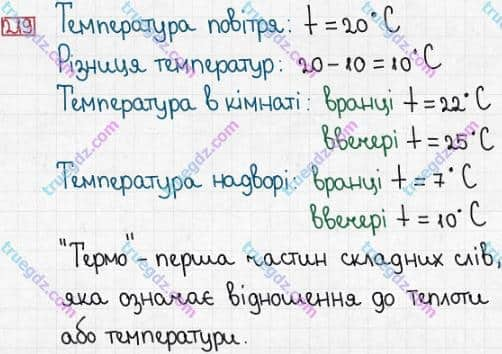 219 Температура повітря: t = 20°C
Різниця температур: 20 - 10 = 10°C
Температура в кімнаті: вранці t = 22°C
ввечері t = 25°C
Температура надворі: вранці t = 7°C
ввечері t = 10°C
"Термо" - перша частин складних слів,
яка означає відношення до теплоти
або температури.
truegdz.com